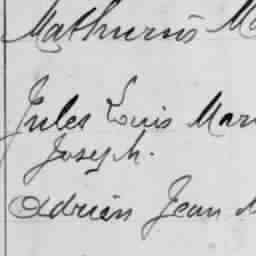 Mathurins Ma
Jules Louis Mari
Joseph.
Adrien Jean M